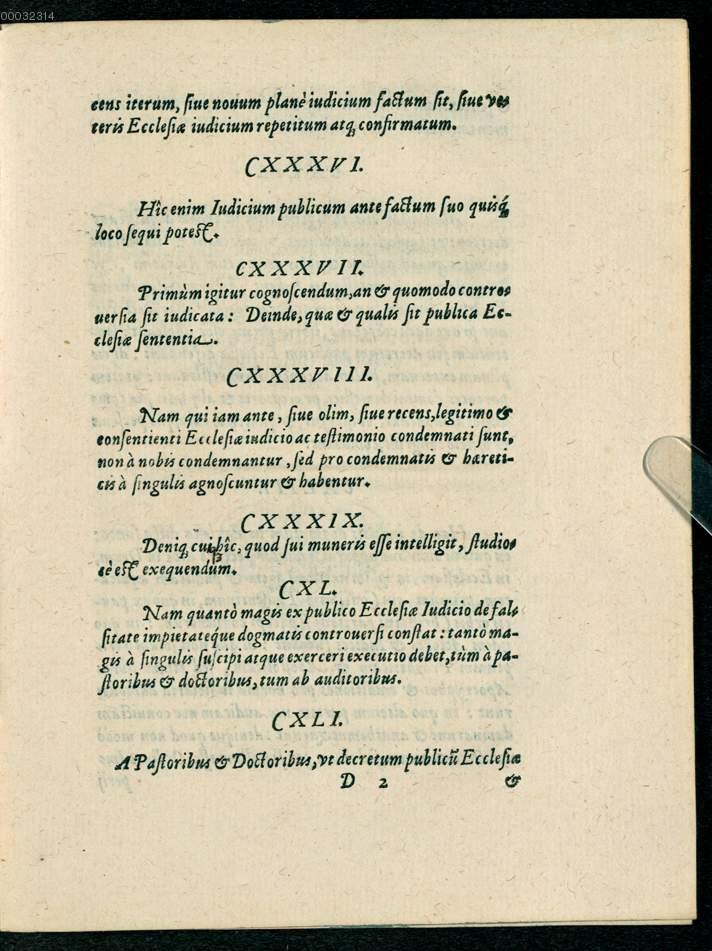 00032314
cens iterum, ſiue nouum planè iudicium factum ſit, ſiue ve⸗
teris Eccleſiæ iudicium repetitum atq; confirmatum.
CXXXVI.
Hîc enim Iudicium publicum ante factum ſuo quisq́;
loco ſequi poteſt.
CXXXVII.
Primùm igitur cognoſcendum, an & quomodo contro⸗
uerſia ſit iudicata: Deinde, quæ & qualis ſit publica Ec-
cleſiæ ſententia.
CXXXVIII.
Nam qui iam ante, ſiue olim, ſiue recens, legitimo &
conſentienti Eccleſiæ iudicio ac teſtimonio condemnati ſunt,
non à nobis condemnantur, ſed pro condemnatis & hæreti-
cis à ſingulis agnoſcuntur & habentur.
CXXXIX.
Deniq; cui hîc, quod ſui muneris eſſe intelligit, ſtudio⸗
sè eſt exequendum.
CXL.
Nam quantò magis ex publico Eccleſiæ Iudicio de fal⸗
ſitate impietateq́ue dogmatis controuerſi conſtat: tantò ma-
gis à ſingulis ſuſcipi atque exerceri executio debet, tùm à pa-
ſtoribus & doctoribus, tum ab auditoribus.
CXLI.
A Paſtoribus & Doctoribus, vt decretum publicũ Eccleſiæ
D 2 &